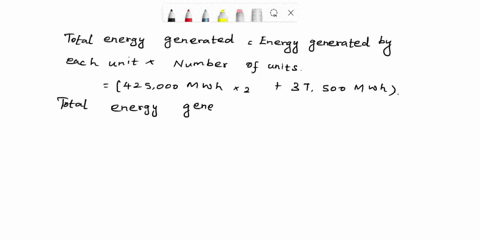 Total energy generated = Energy generated by
each unit × Number of units.
= (425,000 MWh × 2 + 37,500 MWh).
Total energy gene